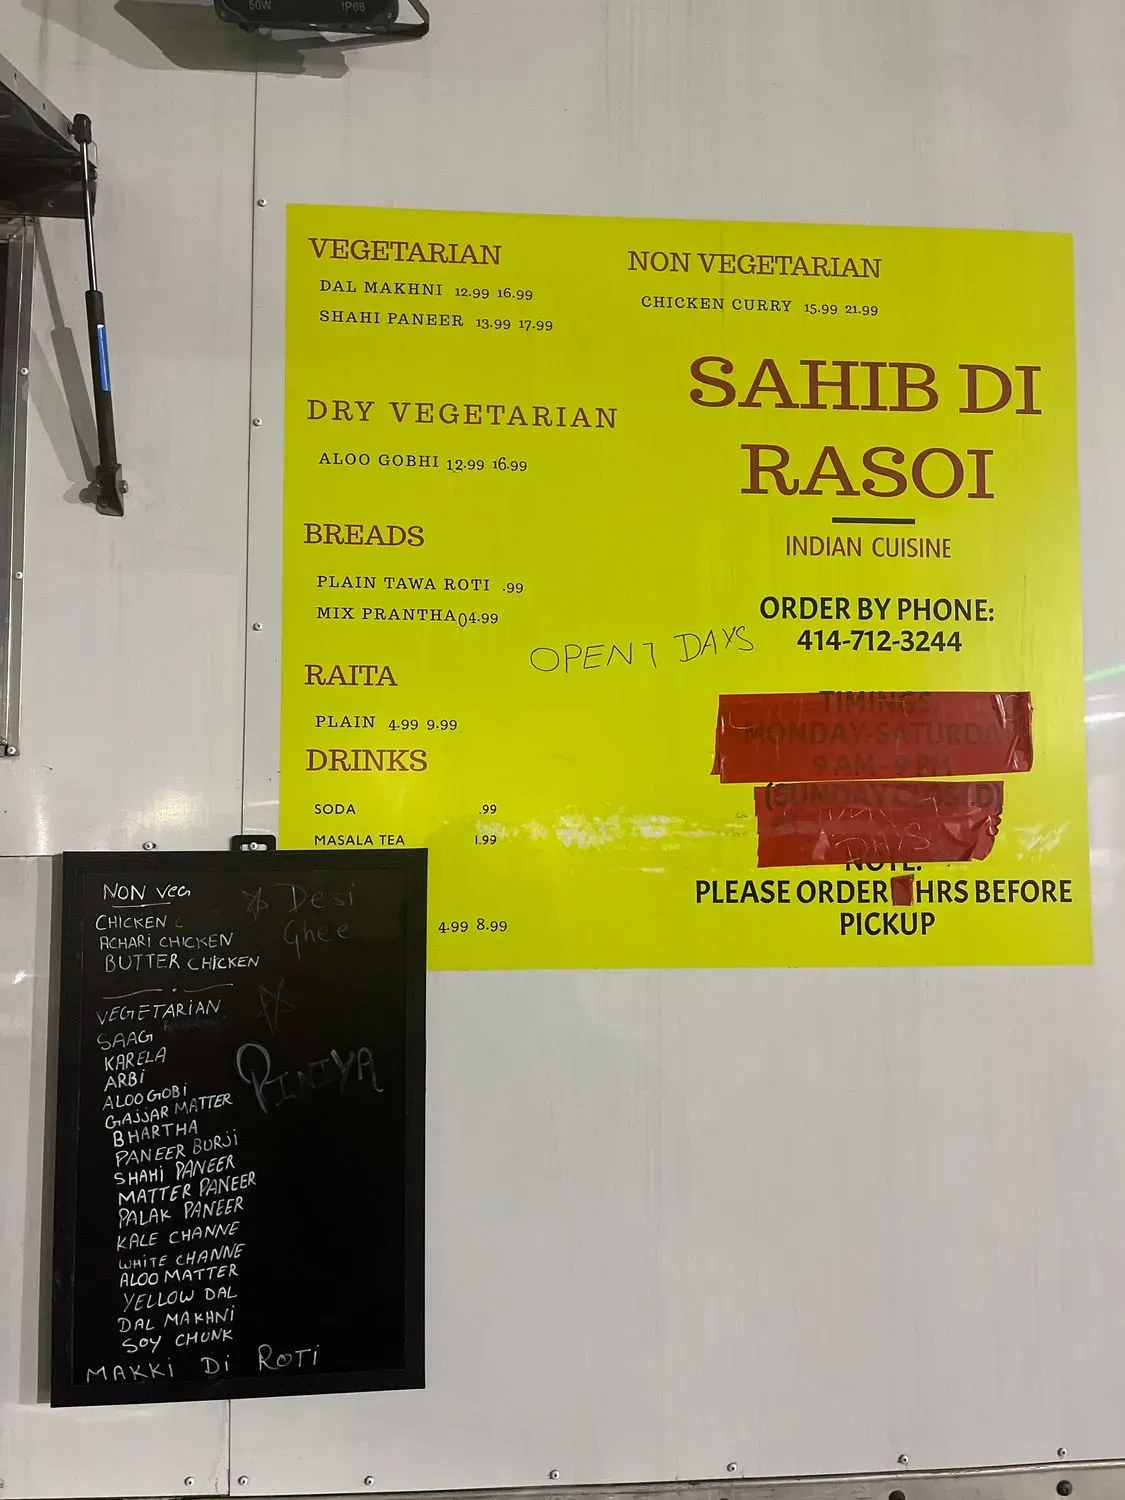 50W IP68
VEGETARIAN
DAL MAKHNI 12.99 16.99
SHAHI PANEER 13.99 17.99
DRY VEGETARIAN
ALOO GOBHI 12.99 16.99
BREADS
PLAIN TAWA ROTI .99
MIX PRANTHA04.99
RAITA
PLAIN 4.99 9.99
DRINKS
SODA .99
MASALA TEA 1.99
4.99 8.99
NON VEGETARIAN
CHICKEN CURRY 15.99 21.99
SAHIB DI
RASOI
INDIAN CUISINE
ORDER BY PHONE:
414-712-3244
OPEN 7 DAYS
TIMINGS:
MONDAY-SATURDAY
9 AM - 9 PM
(SUNDAY CLOSED)
DAYS
NOTE:
PLEASE ORDER HRS BEFORE
PICKUP
NON VEG
CHICKEN
ACHARI CHICKEN
BUTTER CHICKEN
VEGETARIAN
SAAG
KARELA
ARBI
ALOO GOBI
GAJJAR MATTER
BHARTHA
PANEER BURJI
SHAHI PANEER
MATTER PANEER
PALAK PANEER
KALE CHANNE
WHITE CHANNE
ALOO MATTER
YELLOW DAL
DAL MAKHNI
SOY CHUNK
MAKKI DI ROTI
Desi
Ghee
PINIYA